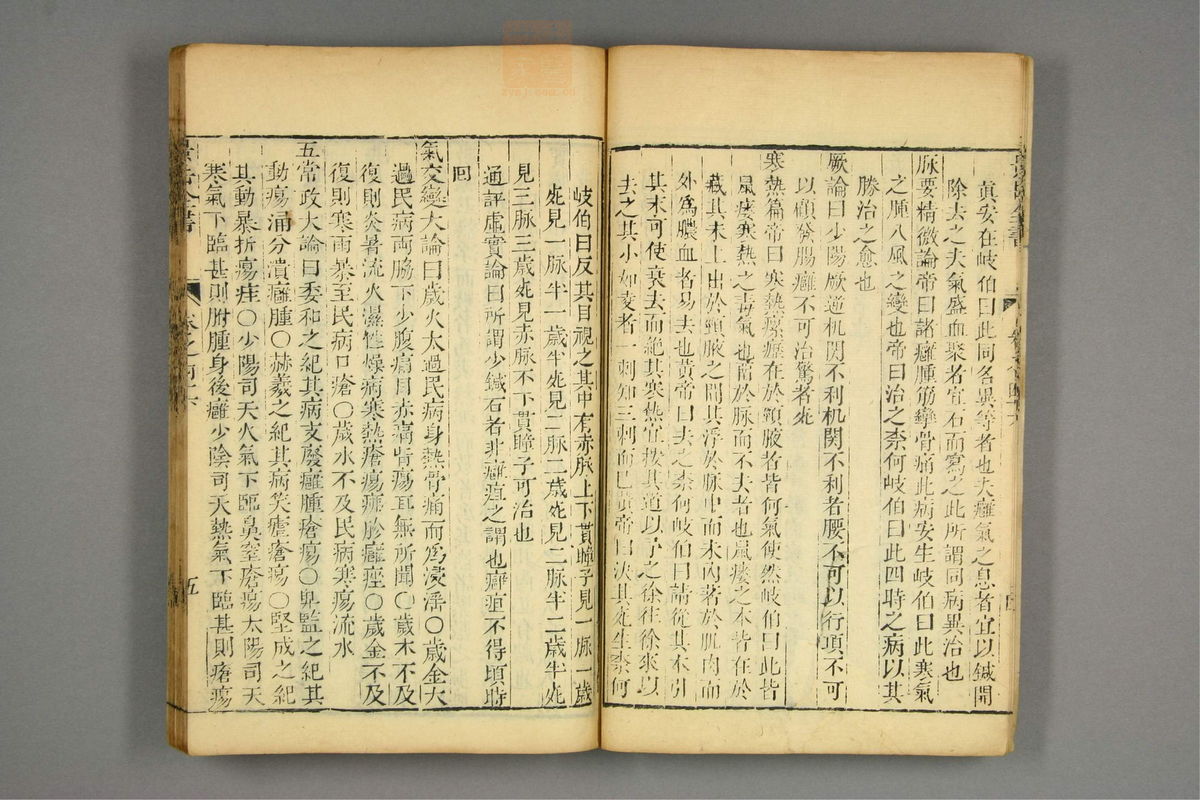 眞安在岐伯曰此同名異等者也夫癰氣之息者宜以鍼開
除去之夫氣盛血聚者宜石而瀉之此所謂同病異治也
脉要精微論帝曰諸癰腫筋攣骨痛此病安生岐伯曰此寒氣
之腫八風之變也帝曰治之柰何岐伯曰此四時之病以其
勝治之愈也
厥論曰少陽厥逆机関不利机関不利者腰不可以行項不可
以顧發腸癰不可治驚者死
寒熱篇帝曰寒熱瘰癧在於頸腋者皆何氣使然岐伯曰此皆
鼠瘻寒熱之毒氣也留於脉而不去者也鼠瘻之本皆在於
藏其末上出於頸腋之間其浮於脉中而未内著於肌肉而
外爲膿血者易去也黄帝曰去之柰何岐伯曰請從其本引
其末可使衰去而絶其寒熱宜按其道以予之徐往徐來以
去之其小如麥者一刺知三刺而已黄帝曰决其死生柰何
岐伯曰反其目視之其中有赤脉上下貫瞳子見一脉一歲
死見一脉半一歲半死見二脉二歲死見二脉半二歲半死
見三脉三歲死見赤脉不下貫瞳子可治也
通評虛實論曰所謂少鍼石者非癰疽之謂也癰疽不得頃時
回
氣交變大論曰歲火太過民病身熱骨痛而爲浸淫○歲金太
過民病両脇下少腹痛目赤痛眥瘍耳無所聞○歲木不及
復則炎暑流火濕性燥病寒熱瘡瘍疿胗癰痤○歲金不及
復則寒雨暴至民病口瘡○歲水不及民病寒瘍流水
五常政大論曰委和之紀其病支廢癰腫瘡瘍○卑監之紀其
動瘍涌分潰癰腫○赫羲之紀其病笑瘧瘡瘍○堅成之紀
其動暴折瘍疰○少陽司天火氣下臨鼻窒瘡瘍太陽司天
寒氣下臨甚則胕腫身後癰少陰司天熱氣下臨甚則瘡瘍
五